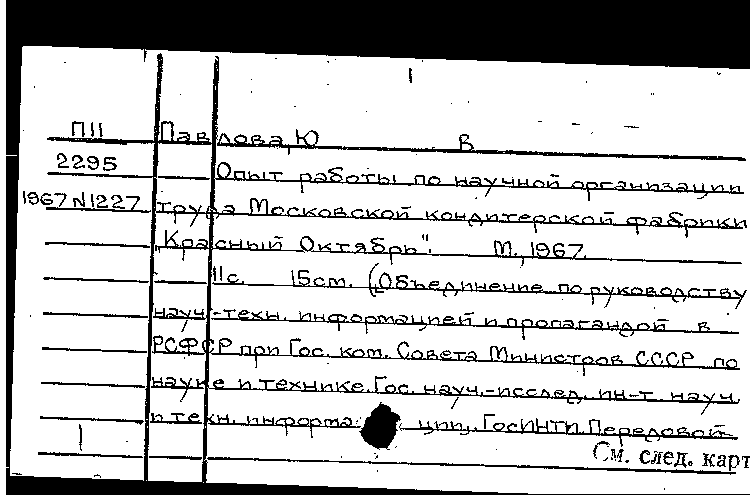 П11 Павлова, Ю В
2295 Опыт работы по научной организации
1967 N1227 труда Московской кондитерской фабрики
„Красный Октябрь". М., 1967.
11с. 15см. (Объединение по руководству
науч.-техн. информацией и пропагандой в
РСФСР при Гос. ком. Совета Министров СССР по
науке и технике. Гос. науч.-исслед. ин-т науч.
и техн. информа ции. ГосИНТИ. Передовой
См. след. карт